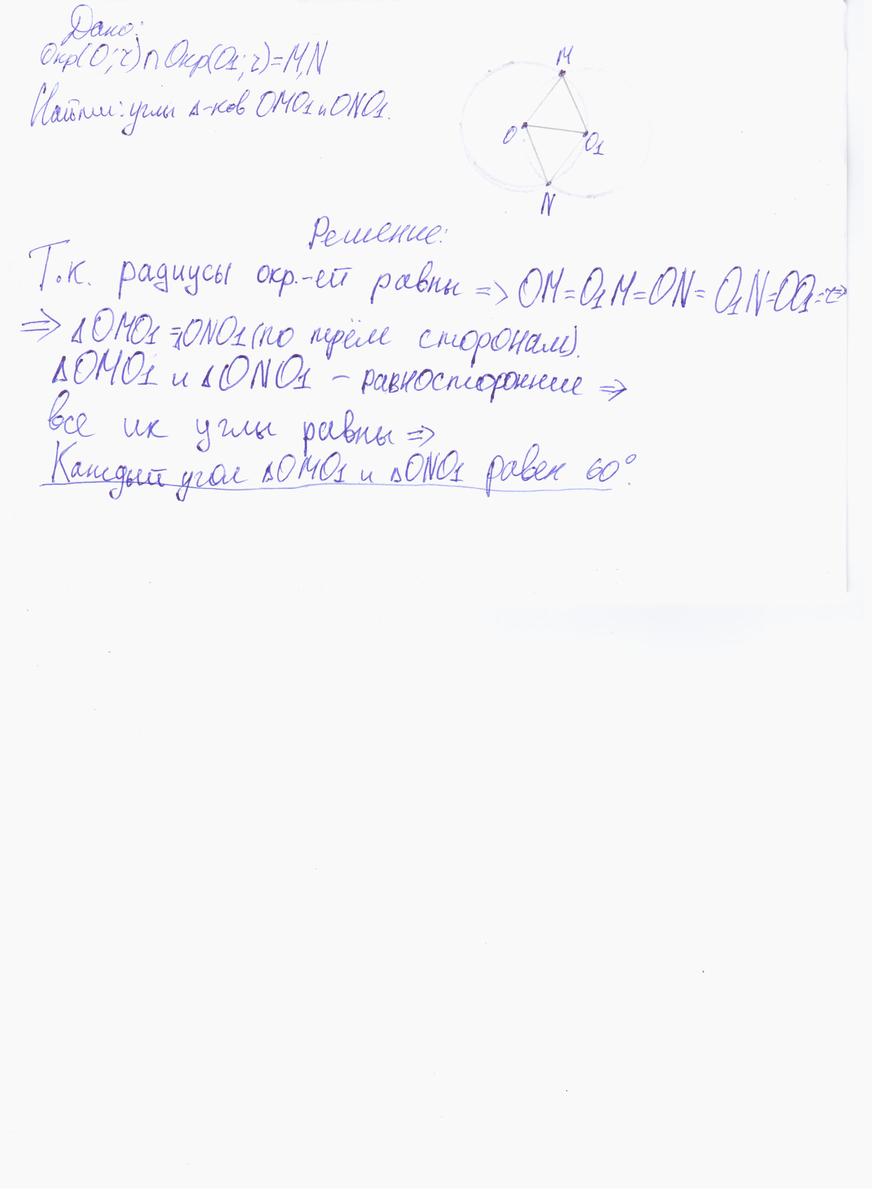 Дано:
Окр(O; r)∩Окр(O1; r)=M,N
Найти: углы Δ-ков OMO1 и ONO1.
M
O
O1
N
Решение:
Т.к. радиусы окр.-ей равны => OM=O1M=ON=O1N=OO1=r=>
=> ΔOMO1=ΔONO1(по трём сторонам).
ΔOMO1 и ΔONO1 – равносторонние =>
все их углы равны =>
Каждый угол ΔOMO1 и ΔONO1 равен 60°.